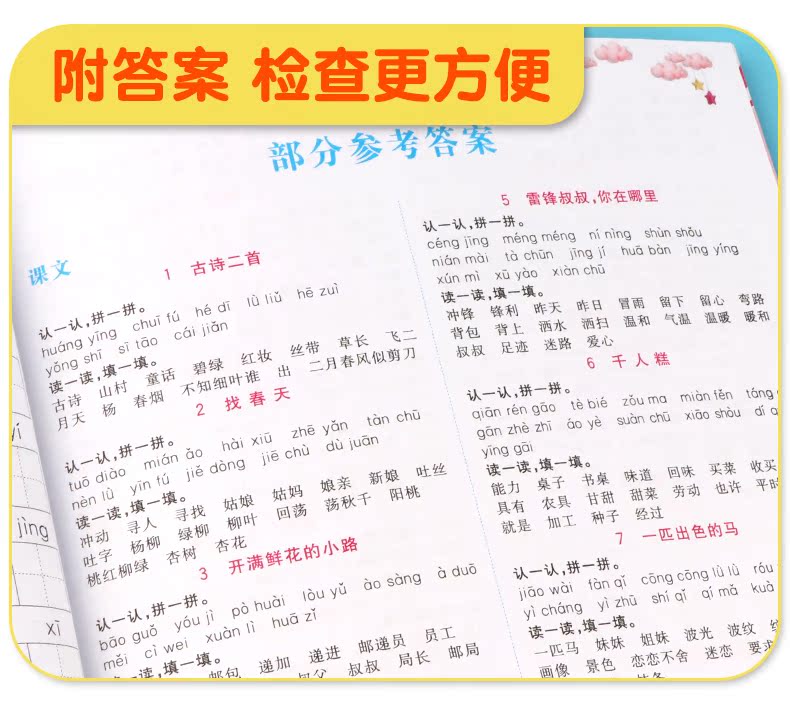 附答案 检查更方便
部分参考答案
课文
1 古诗二首
认一认,拼一拼。
huáng yīng chuī fú hé dī lǜ liǔ hē zuì
yǒng shī sī tāo cái jiǎn
读一读,填一填。
古诗 山村 童话 碧绿 红妆 丝带 草长 飞二
月天 杨 春烟 不知细叶谁 出 二月春风似剪刀
2 找春天
认一认,拼一拼。
tuō diào mián ǎo hài xiū zhē yǎn tàn chū
nèn lǜ yīn fú jiě dòng jiē chù dù juān
读一读,填一填。
冲动 寻人 寻找 姑娘 姑妈 娘亲 新娘 吐丝
吐字 杨柳 绿柳 柳叶 回荡 荡秋千 阳桃
桃红柳绿 杏树 杏花
3 开满鲜花的小路
认一认,拼一拼。
bāo guǒ yóu jì pò huài lòu yǔ ào sàng à duō
měi cì wei xuàn lì huā zǐ
读一读,填一填。
邮包 递加 递进 邮递员 员工
叔叔 局长 邮局
5 雷锋叔叔,你在哪里
认一认,拼一拼。
céng jīng méng méng ní nìng shùn shǒu
nián mài tà chūn jīng jí huā bàn jīng yíng
xún mì xū yào xiàn chū
读一读,填一填。
冲锋 锋利 昨天 昨日 冒雨 留下 留心 弯路
背包 背上 洒水 洒扫 温和 气温 温暖 暖和
叔叔 足迹 迷路 爱心
6 千人糕
认一认,拼一拼。
qiān rén gāo tè bié zǒu ma miàn fěn táng
gān zhè zhī áo yè suàn chū xiāo shòu dí
yīng gāi
读一读,填一填。
能力 桌子 书桌 味道 回味 买菜 收买
具有 农具 甘甜 甜菜 劳动 也许 平时
就是 加工 种子 经过
7 一匹出色的马
认一认,拼一拼。
jiāo wài fàn qǐ cōng cōng lǜ lǜ róu
yì cháng yì zhū shí qǐ qí mǎ kuà
读一读,填一填。
一匹马 妹妹 姐妹 波光 波纹
画像 景色 恋恋不舍 迷恋 要求
yí
jìng
xī